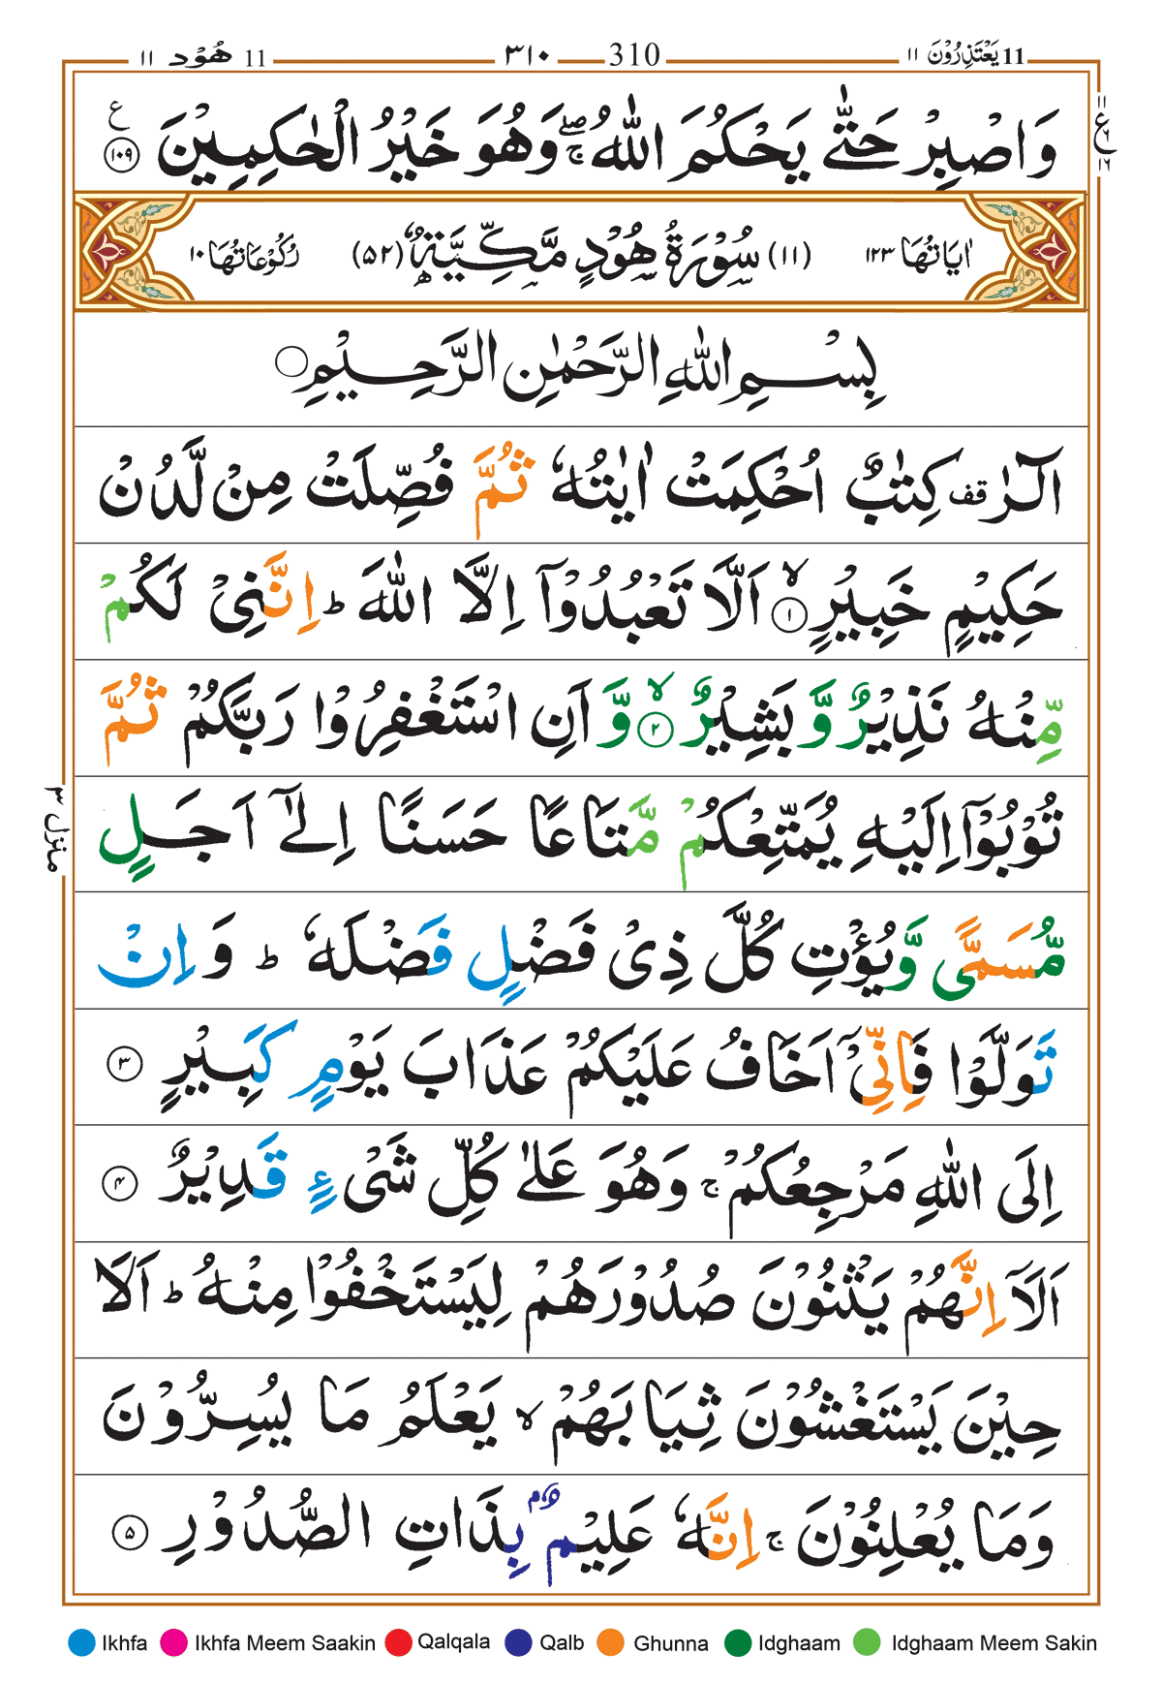 11 يَعْتَذِرُوْنَ ١١ 310 ٣١٠ 11 هُوْد ١١
وَاصْبِرْ حَتّٰى يَحْكُمَ اللّٰهُ ۖۚ وَهُوَ خَيْرُ الْحٰكِمِيْنَ ١٠٩ ع
١١ ع ٦ ١٦
اٰيَاتُهَا ١٢٣ (١١) سُوْرَةُ هُوْدٍ مَّكِّيَّةٌ (٥٢) رُكُوْعَاتُهَا ١٠
بِسْمِ اللّٰهِ الرَّحْمٰنِ الرَّحِيْمِ
الٓرٰ قف كِتٰبٌ اُحْكِمَتْ اٰيٰتُهٗ ثُمَّ فُصِّلَتْ مِنْ لَّدُنْ
حَكِيْمٍ خَبِيْرٍ ۙ ١ اَلَّا تَعْبُدُوْٓا اِلَّا اللّٰهَ ؕ اِنَّنِىْ لَكُمْ
مِّنْهُ نَذِيْرٌ وَّبَشِيْرٌ ۙ ٢ وَّاَنِ اسْتَغْفِرُوْا رَبَّكُمْ ثُمَّ
تُوْبُوْٓا اِلَيْهِ يُمَتِّعْكُمْ مَّتَاعًا حَسَنًا اِلٰٓى اَجَلٍ
مُّسَمًّى وَّيُؤْتِ كُلَّ ذِىْ فَضْلٍ فَضْلَهٗ ؕ وَاِنْ
تَوَلَّوْا فَاِنِّىْٓ اَخَافُ عَلَيْكُمْ عَذَابَ يَوْمٍ كَبِيْرٍ ٣
اِلَى اللّٰهِ مَرْجِعُكُمْ ۚ وَهُوَ عَلٰى كُلِّ شَىْءٍ قَدِيْرٌ ٤
اَلَآ اِنَّهُمْ يَثْنُوْنَ صُدُوْرَهُمْ لِيَسْتَخْفُوْا مِنْهُ ؕ اَلَا
حِيْنَ يَسْتَغْشُوْنَ ثِيَابَهُمْ ۙ يَعْلَمُ مَا يُسِرُّوْنَ
وَمَا يُعْلِنُوْنَ ۚ اِنَّهٗ عَلِيْمٌۢ بِذَاتِ الصُّدُوْرِ ٥
منزل ٣
Ikhfa Ikhfa Meem Saakin Qalqala Qalb Ghunna Idghaam Idghaam Meem Sakin